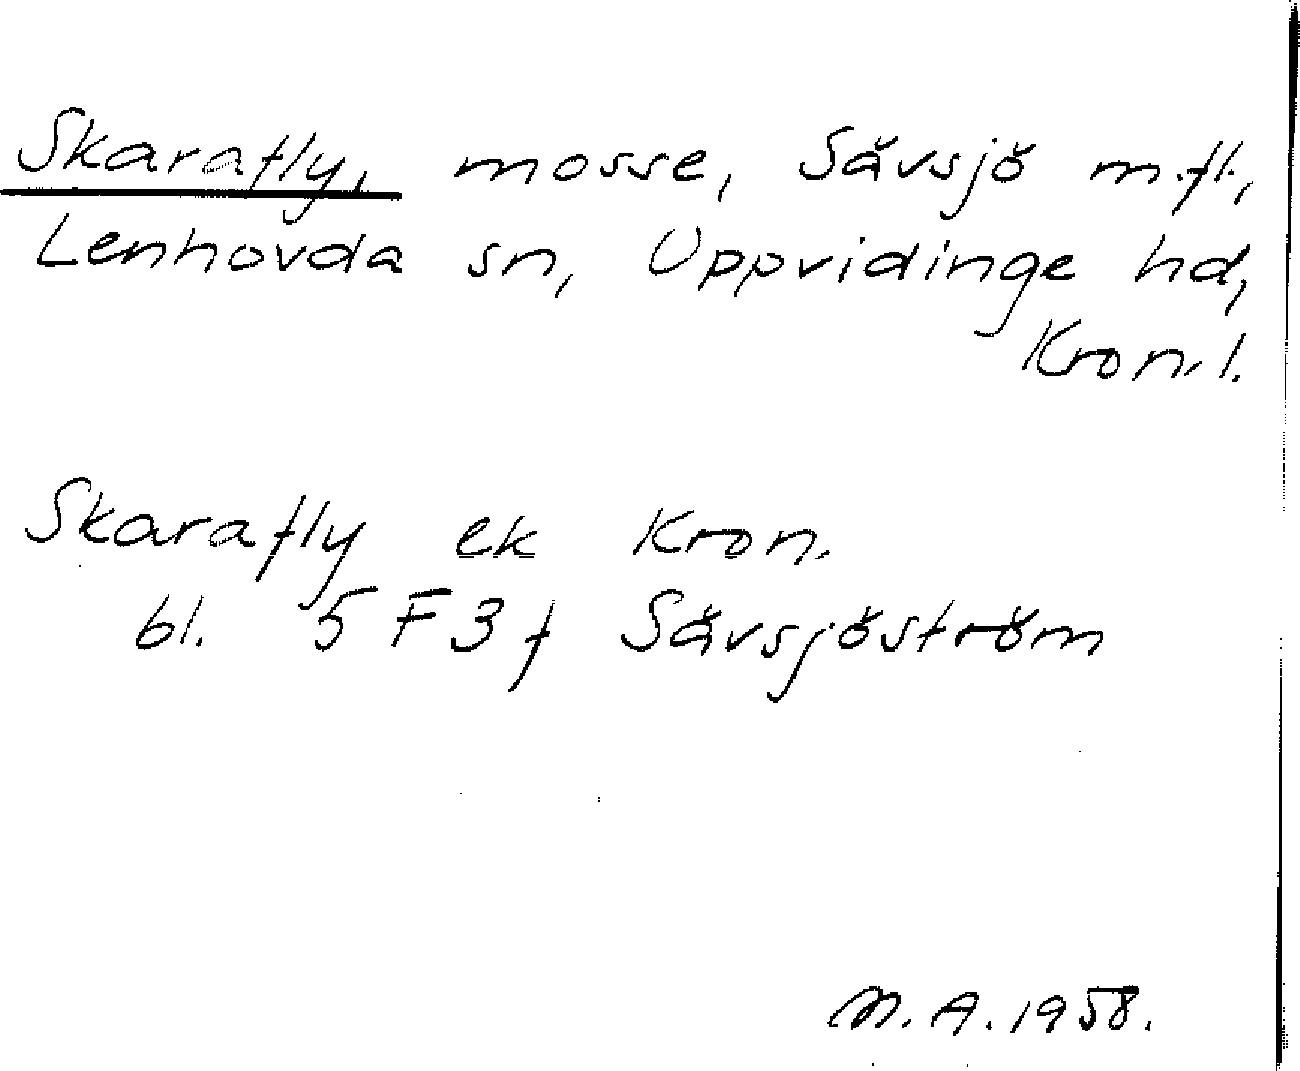 Skarafly, mosse, Sävsjö m.fl.,
Lenhovda sn, Uppvidinge hd,
Kron.l.
Skarafly ek Kron.
bl. 5F3f Sävsjöström
M.A. 1958.